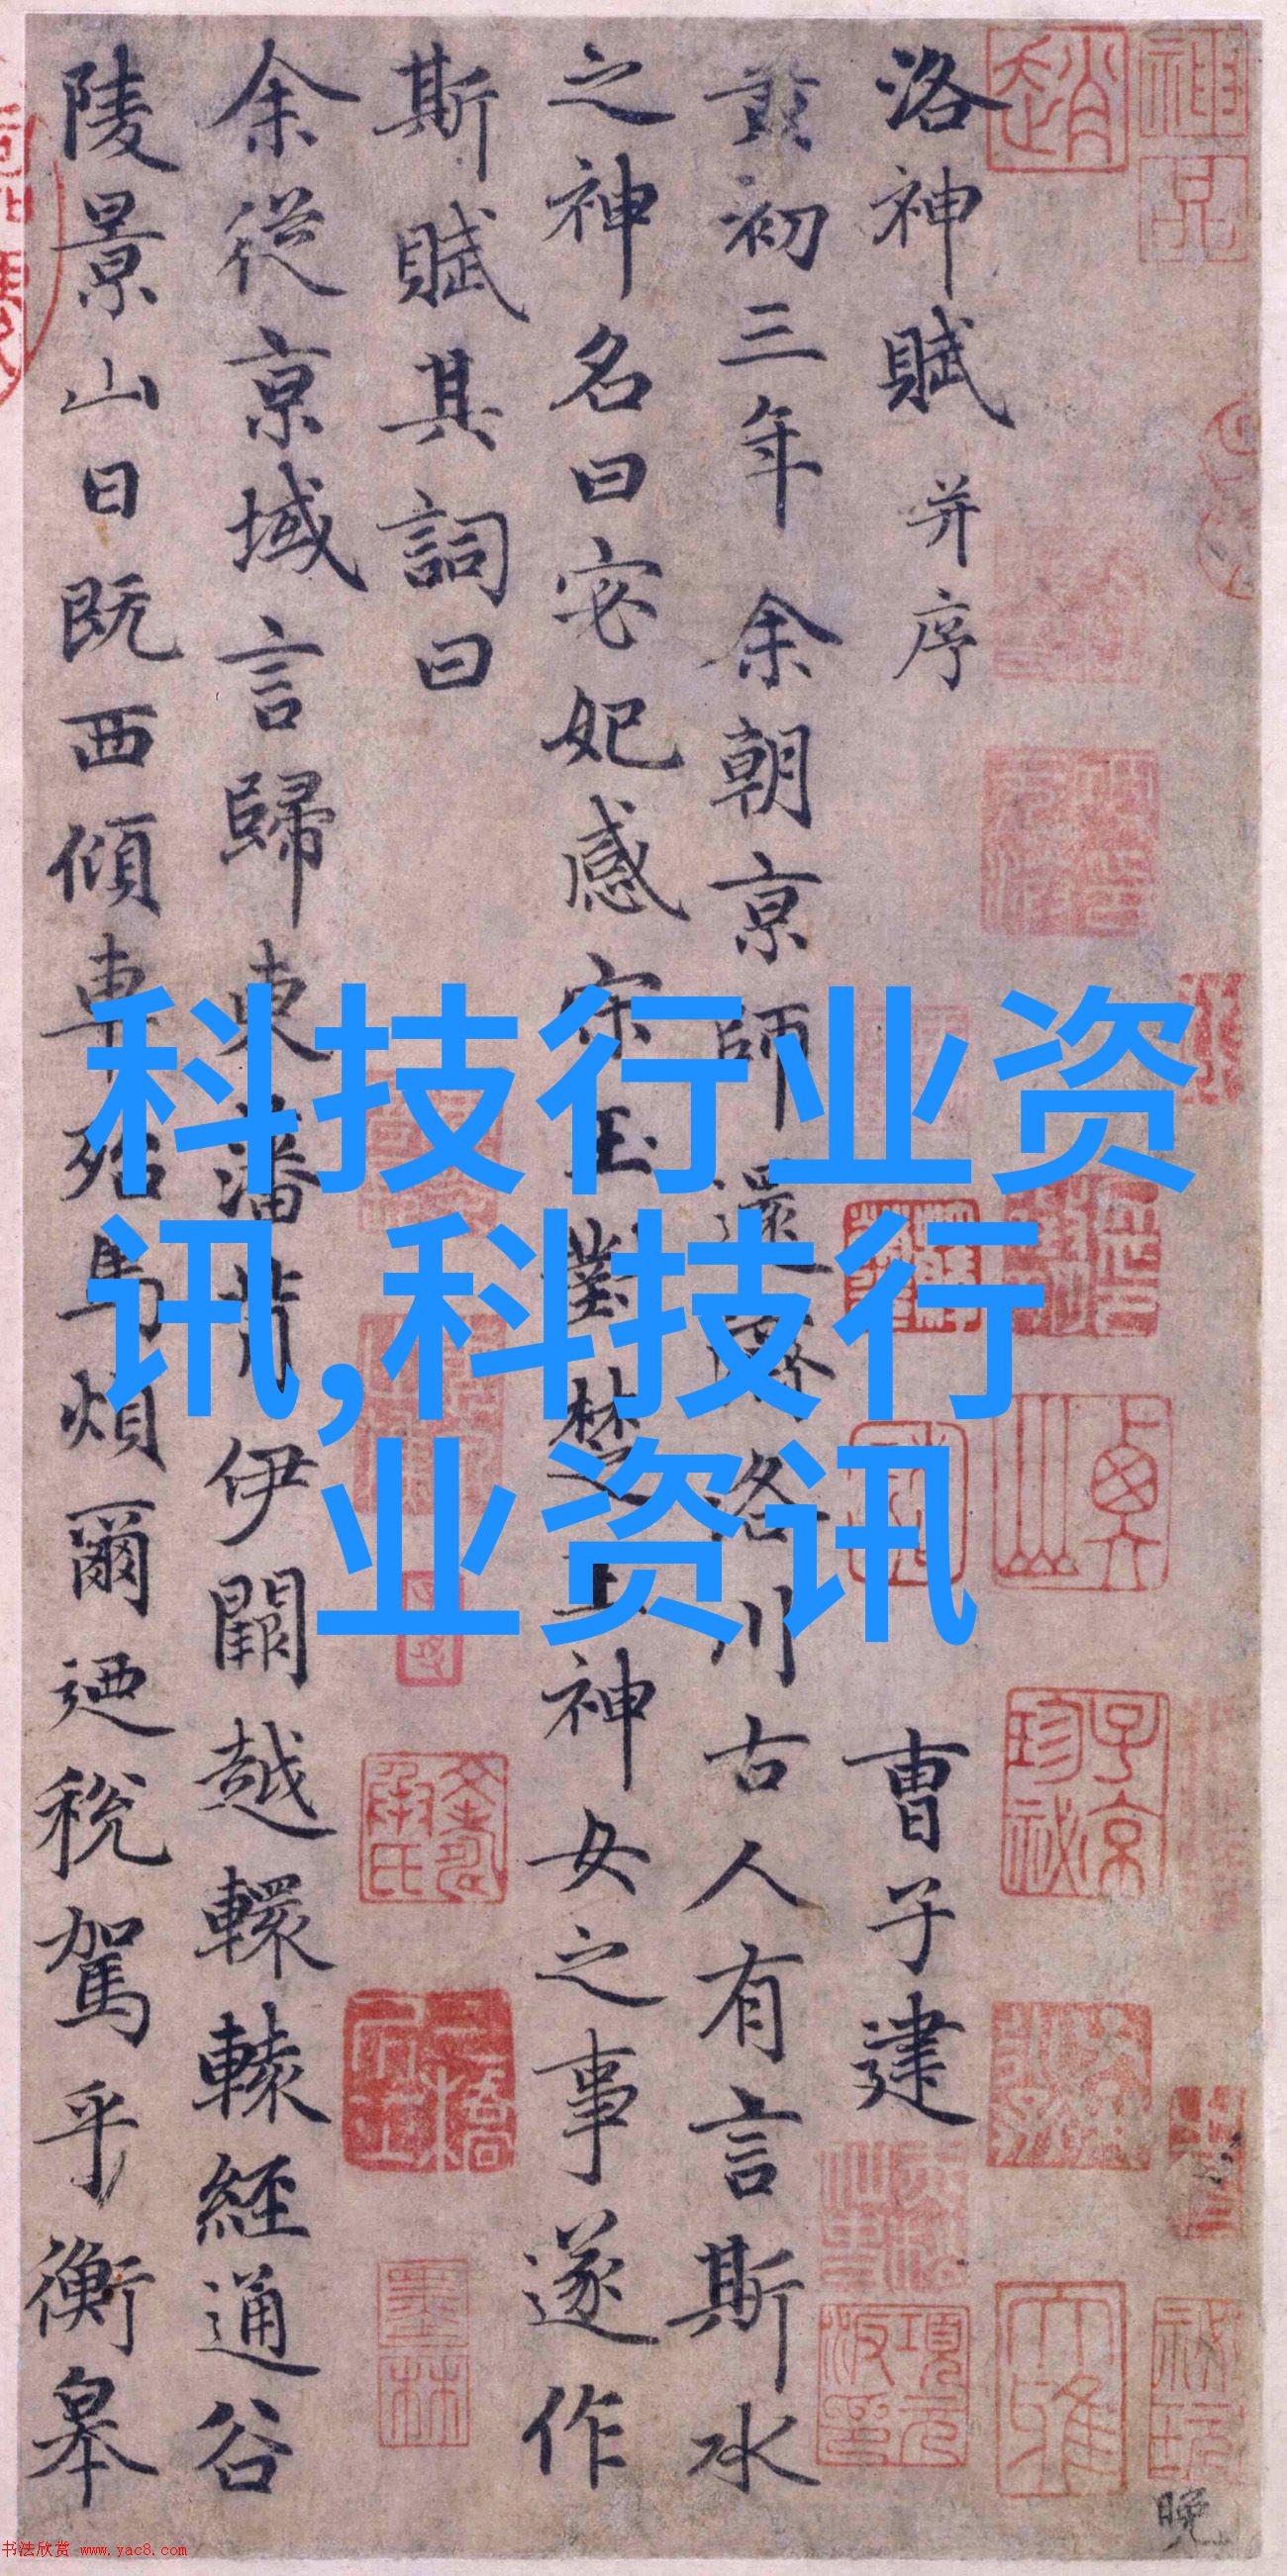 神品
趙
洛神賦 并序 曹子建
黄初三年余朝京師還濟洛川古人有言斯水
之神名曰宓妃感宋玉對楚王神女之事遂作
斯賦其詞曰
余從京域言歸東藩背伊闕越轘轅經通谷
陵景山日既西傾車殆馬煩爾迺税駕乎衡皋
科技行业资
讯,科技行
业资讯
子京珍秘
項元汴印
墨林
大雅
晚
书法欣赏 www.yac8.com